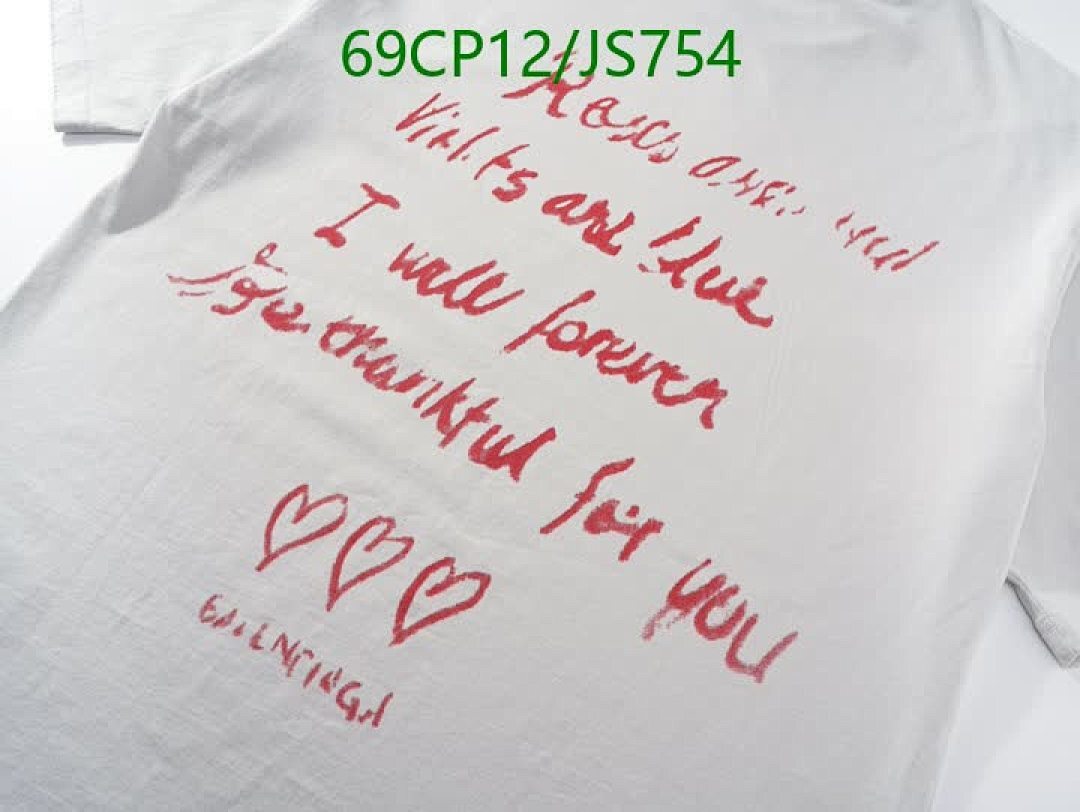 69CP12/JS754
Roses are red
Violets are blue
I will forever
be thankful for you
BALENCIAGA